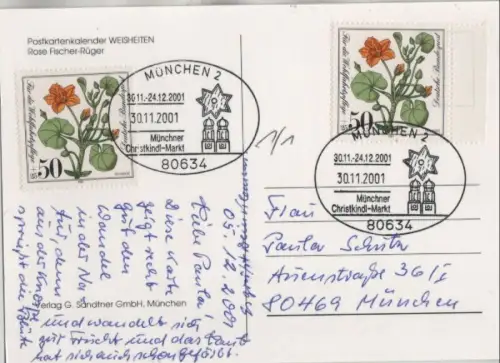 Postkartenkalender WEISHEITEN
Rose Fischer-Rüger
Für die Wohlfahrtspflege
Deutsche Bundespost
50
MÜNCHEN 2
30.11.-24.12.2001
30.11.2001
Münchner
Christkindl-Markt
80634
Für die Wohlfahrtspflege
Deutsche Bundespost
50
MÜNCHEN 2
30.11.-24.12.2001
30.11.2001
Münchner
Christkindl-Markt
80634
1/1
05.12.2001
Liebe
Diese Karte
zeigt recht
gut den
Wandel
in der Na
tur, denn
aus der Knospe
sprießt die Blüte
und wandelt sich
zur Frucht und das
hat sich auch schon gefärbt.
Verlag G. Sandtner GmbH, München
Frau
36/I
80469 München